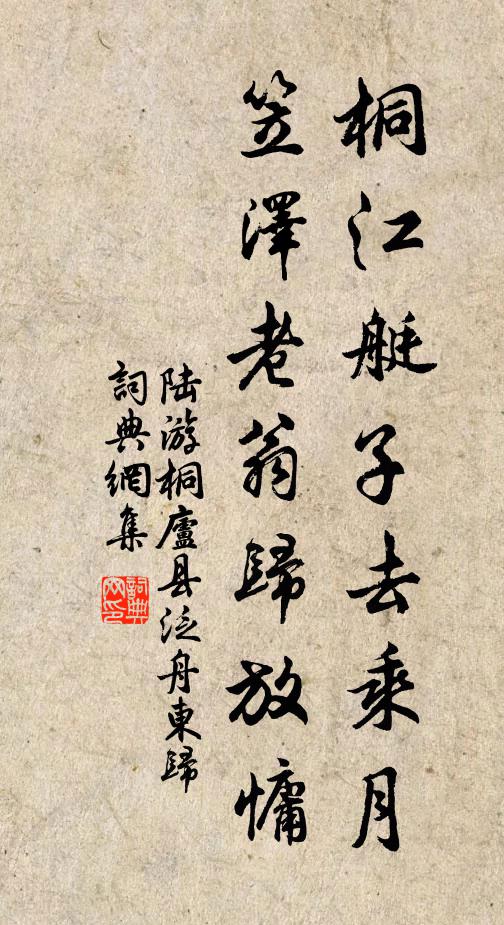 桐江艇子去乘月
笠澤老翁歸放慵
陆游桐廬县泛舟東歸
詞典網集
詞典網印